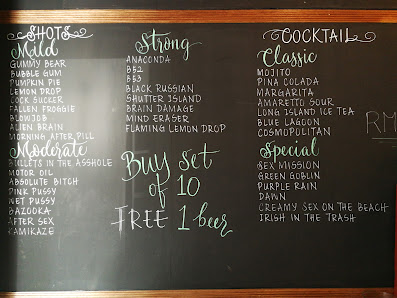 SHOTS
Mild
GUMMY BEAR
BUBBLE GUM
PUMPKIN PIE
LEMON DROP
COCK SUCKER
FALLEN FROGGIE
BLOWJOB
ALIEN BRAIN
MORNING AFTER PILL
Moderate
BULLETS IN THE ASSHOLE
MOTOR OIL
ABSOLUTE BITCH
PINK PUSSY
WET PUSSY
BAZOOKA
AFTER SEX
KAMIKAZE
Strong
ANACONDA
B52
B53
BLACK RUSSIAN
SHUTTER ISLAND
BRAIN DAMAGE
MIND ERASER
FLAMING LEMON DROP
Buy set
of 10
FREE 1 beer
COCKTAIL
Classic
MOJITO
PINA COLADA
MARGARITA
AMARETTO SOUR
LONG ISLAND ICE TEA
BLUE LAGOON
COSMOPOLITAN
Special
SEX MISSION
GREEN GOBLIN
PURPLE RAIN
DAWN
CREAMY SEX ON THE BEACH
IRISH IN THE TRASH
RM